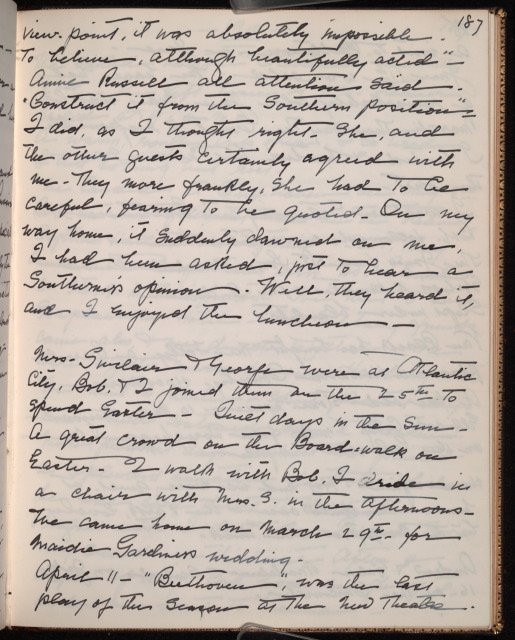 187
view-point, it was absolutely impossible.
To believe, although beautifully acted"-
Annie Russell all attention said.
"Construct it from the Southern position"-
I did, as I thought right- She, and
the other guests certainly agreed with
me- They more frankly, She had to be
careful, fearing to be quoted- On my
way home, it suddenly dawned on me,
I had been asked, just to hear a
Southerner's opinion- Well, they heard it,
and I enjoyed the luncheon-
Mrs- Sinclair & George were at Atlantic
City, Bob & I joined them on the 25th to
spend Easter- Quiet days in the sun-
A great crowd on the Board-walk on
Easter- I walk with Bob. I ride in
a chair with Mrs. S. in the afternoons-
We came home on March 29th- for
Maidie Gardiners wedding-
April 11- "Beethoven" was the last
play of the season at the New Theatre.